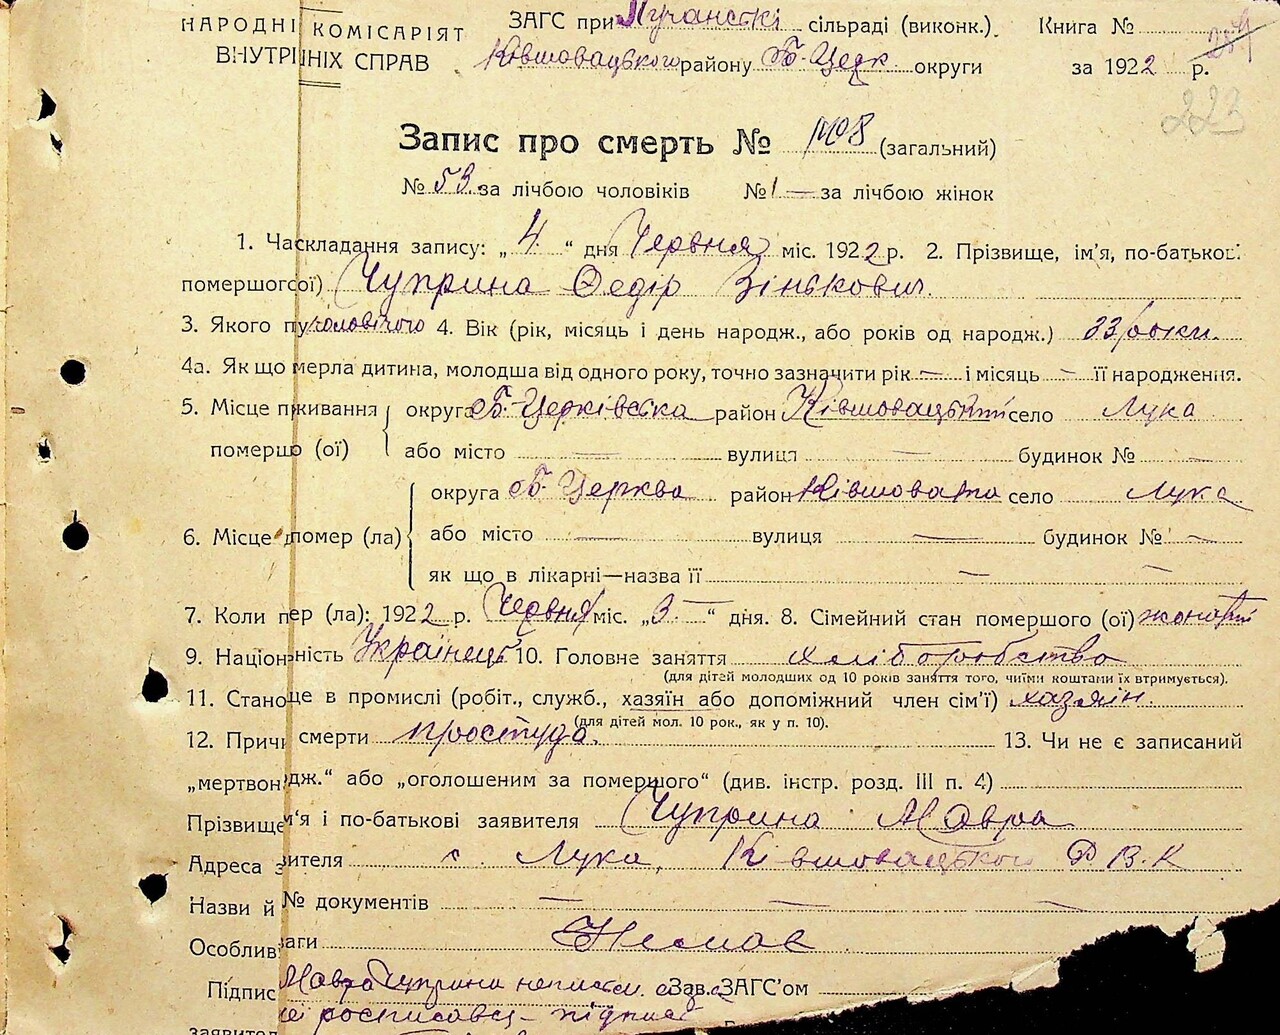 НАРОДНІ КОМІСАРІЯТ ВНУТРІШНІХ СПРАВ
ЗАГС при Лучанські сільраді (виконк.). Книга №
Ківшовацького району Б-Церк. округи за 1922 р.
223
Запис про смерть № 108 (загальний)
№ 53 за лічбою чоловіків № 1 — за лічбою жінок
1. Час складання запису: „4“ дня Червня міс. 1922 р. 2. Прізвище, ім'я, по-батькові
помершого (ої) Чуприна Федір Зінькович.
3. Якого пу чоловічого 4. Вік (рік, місяць і день народж., або років од народж.) 33 роки.
4а. Як що мерла дитина, молодша від одного року, точно зазначити рік — і місяць — її народження.
5. Місце пживання округа Б-Церківська район Ківшовацький село Лука
помершо (ої) або місто — вулиця — будинок № —
округа Б-Церква район Ківшовата село Лука
6. Місце помер (ла) або місто — вулиця — будинок № —
як що в лікарні—назва її — —
7. Коли пер (ла): 1922 р. Червня міс. „3“ дня. 8. Сімейний стан помершого (ої) жонатий
9. Націонність Українець 10. Головне заняття хліборобство
(для дітей молодших од 10 років заняття того, чиїми коштами їх втримується).
11. Станоще в промислі (робіт., служб., хазяїн або допоміжний член сім'ї) хазяін.
(для дітей мол. 10 рок., як у п. 10).
12. Причи смерти простуда. 13. Чи не є записаний
„мертвондж.“ або „оголошеним за помершого“ (див. інстр. розд. III п. 4)
Прізвище м'я і по-батькові заявителя Чуприна Мавра
Адреса звителя с. Лука, Ківшовацького Р.В.К
Назви й № документів — — —
Особливваги Немає
Підпис Мавра Чуприна неписм. Зав. ЗАГС'ом
її росписався підпис
заявител